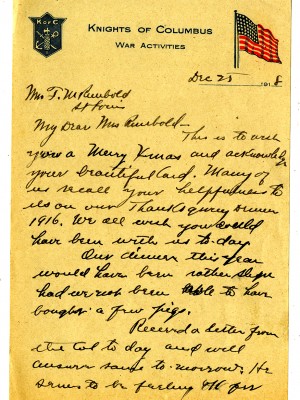 K of C
KNIGHTS OF COLUMBUS
WAR ACTIVITIES
Dec 25 1918
Mrs F. M Rumbold
St Louis
My Dear Mrs Rumbold-
This is to wish
you a Merry Xmas and acknowledge
your beautiful card. Many of
us recall your helpfulness to
us on our Thanksgiving dinner
1916. We all wish you could
have been with us to-day
Our dinner this year
would have been rather slim
had we not been able to have
bought a few pigs.
Received a letter from
the Col to day and will
answer same to-morrow. He
seems to be feeling